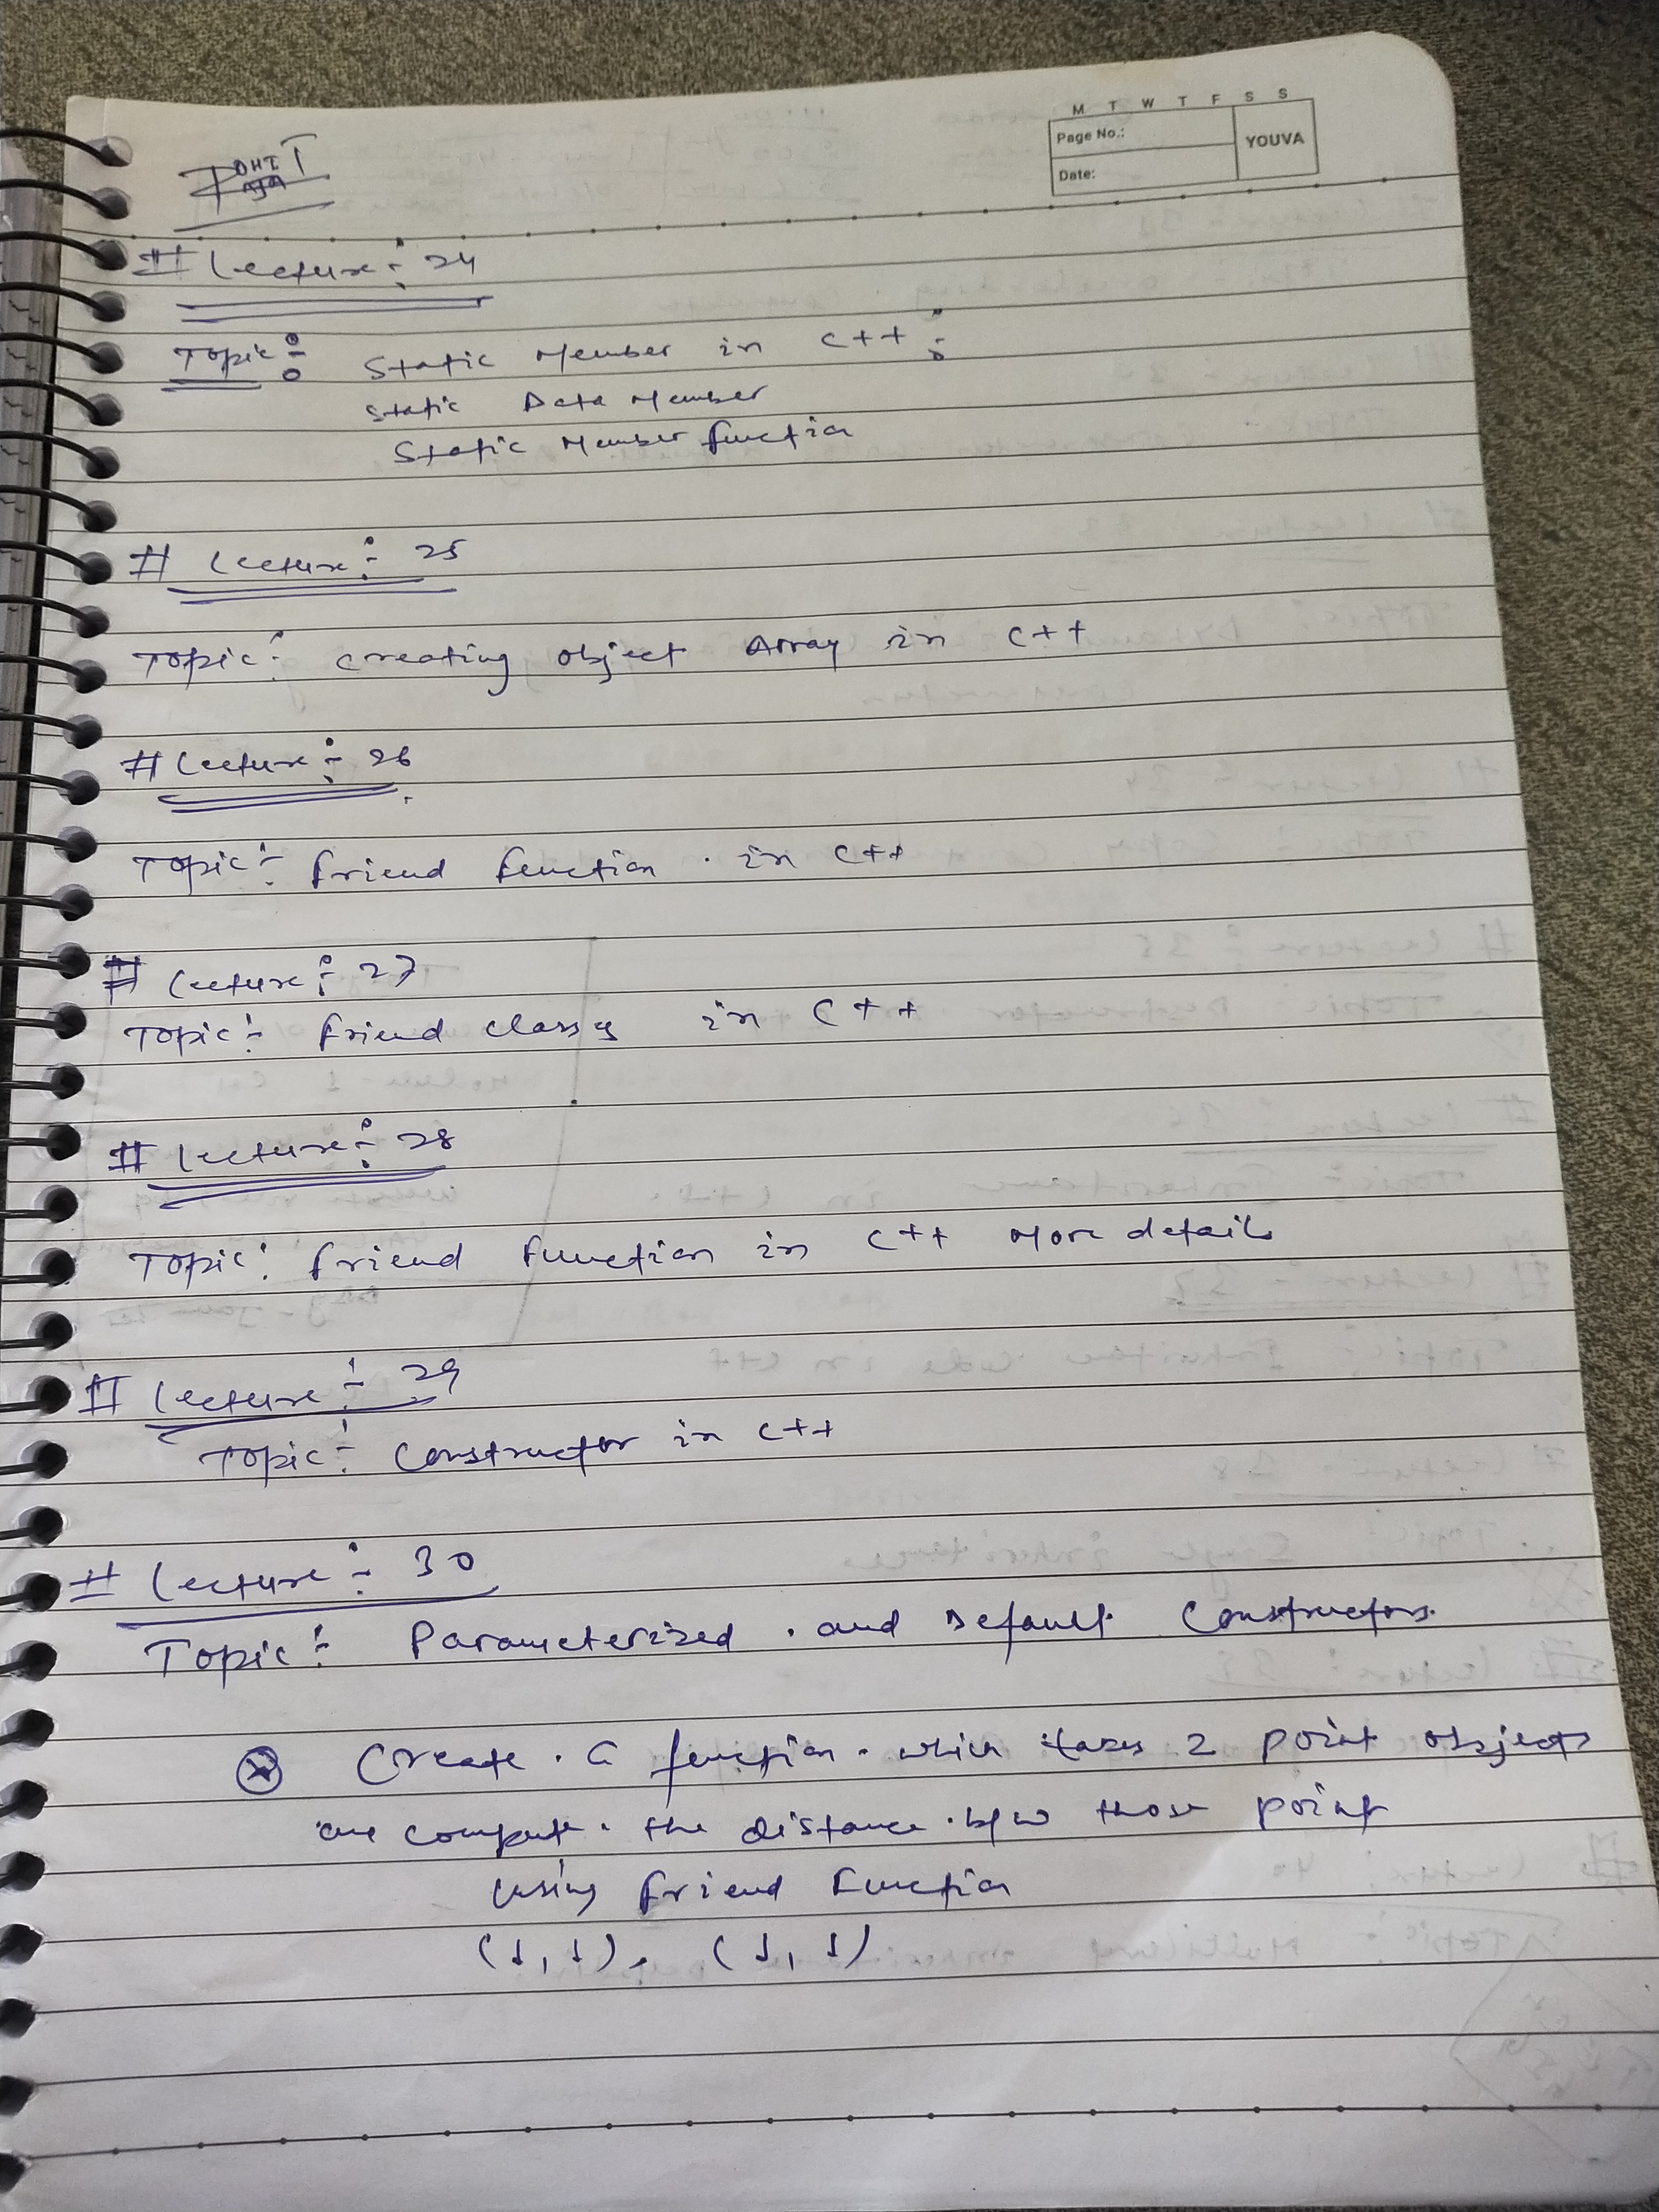 M T W T F S S
Page No.:
YOUVA
Date:
ROHIT
RAJA
# Lecture :- 24
Topic :- Static Member in C++ :-
Static Data Member
Static Member function
# Lecture :- 25
Topic :- creating object Array in C++
# Lecture :- 26
Topic :- friend function . in C++
# Lecture :- 27
Topic :- friend classes in C++
# Lecture :- 28
Topic : friend function in C++ More details
# Lecture :- 29
Topic :- Constructor in C++
# Lecture :- 30
Topic :- Parameterized . and Default Constructors.
Create . a function . which takes 2 point objects
compute . the distance . b/w those point
using friend function
(1,1), (1,1)